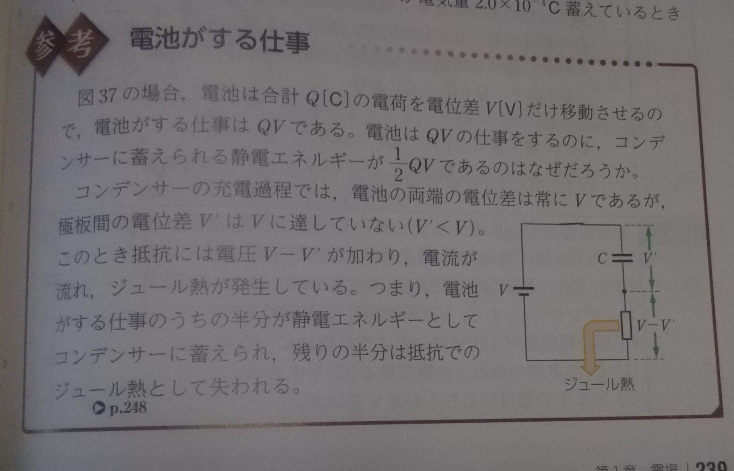 電気量 2.0×10⁻⁴C 蓄えているとき
参考 電池がする仕事
図37の場合，電池は合計 Q[C]の電荷を電位差 V[V]だけ移動させるの
で，電池がする仕事は QVである。電池は QVの仕事をするのに，コンデ
ンサーに蓄えられる静電エネルギーが 1/2 QVであるのはなぜだろうか。
コンデンサーの充電過程では，電池の両端の電位差は常に Vであるが，
極板間の電位差 V′ は Vに達していない(V′<V)。
このとき抵抗には電圧 V−V′ が加わり，電流が
流れ，ジュール熱が発生している。つまり，電池
がする仕事のうちの半分が静電エネルギーとして
コンデンサーに蓄えられ，残りの半分は抵抗での
ジュール熱として失われる。
p.248
C
V′
V
V−V′
ジュール熱
第1章 電場 239